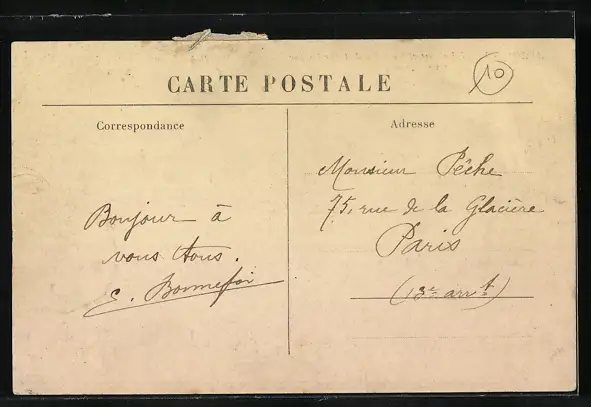 CARTE POSTALE
10
Correspondance
Bonjour à
vous tous.
E. Bonnefoi
Adresse
Monsieur Pêche
75, rue de la Glacière
Paris
(13e arrt)